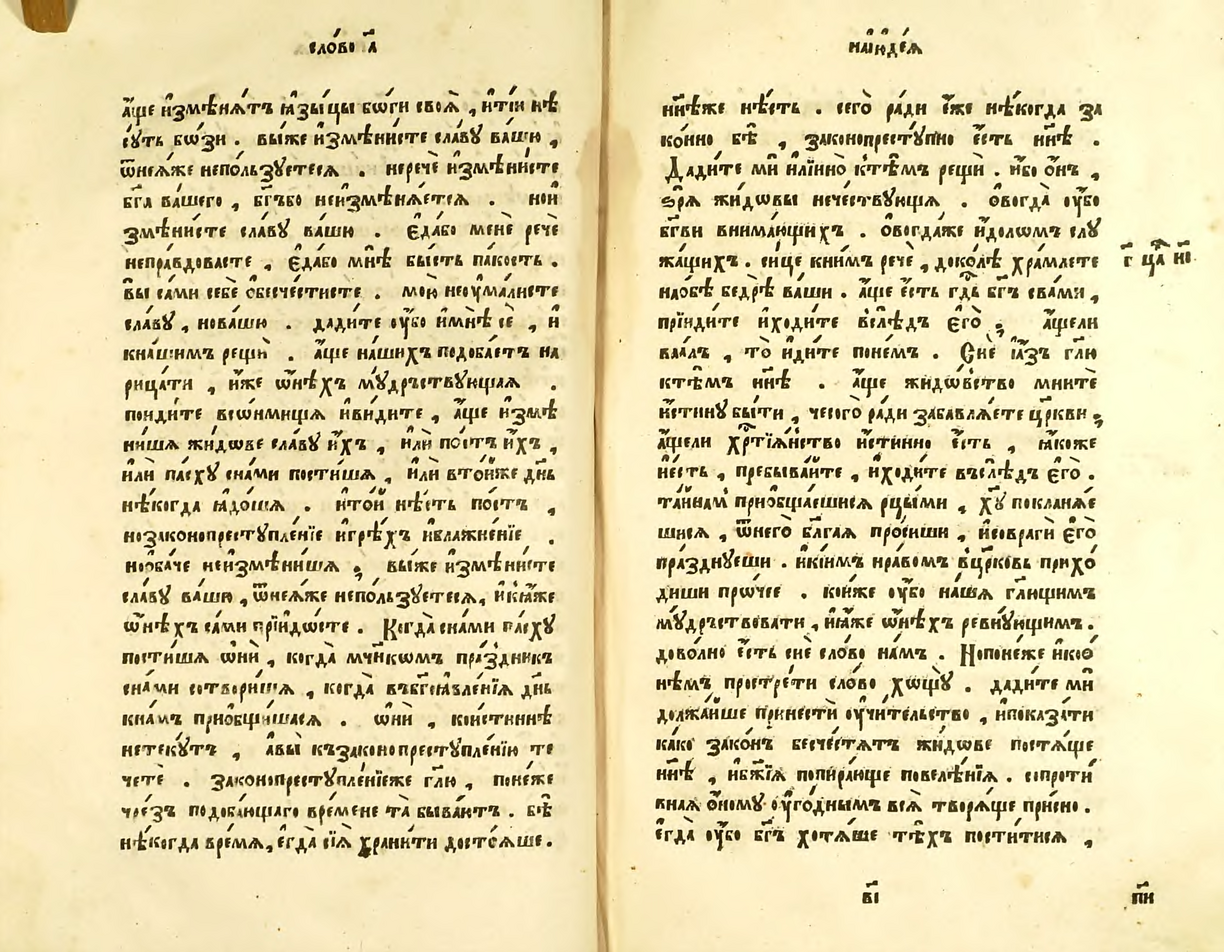 сло́во а҃
а҆́ще и҆змѣнѧ́тъ ꙗ҆зы́цы бѡ́ги своѧ̀ , иті́и нѣ
сꙋ́ть бѡ́зи . вы́же и҆змѣни́сте сла́вꙋ ва́шю ,
ѿнеѧ́же непо́льзꙋетесѧ . неречѐ и҆змѣни́сте
бг҃а ва́шего , бг҃ъбо неи҆змѣнѧ́етсѧ . нои҆
змѣни́сте сла́вꙋ ва́шю . є҆да́бо менѐ речѐ
непра́вдовасте , є҆да́бо мнѣ̀ бы́сть па́кость .
вы̀ са́ми себѐ ѻбесче́стисте . мою̀ неѹ҆ма́листе
сла́вꙋ , нова́шю . дади́те ѹ҆̀бо и҆мнѣ̀ сѐ , и҆
кна́шимъ рещѝ . а҆́ще на́шихъ подоба́етъ на
рица́ти , и҆̀же ѡ҆нѣ́хъ мꙋ́дръствꙋющаѧ .
поиди́те всѡ́нмищѧ и҆ви́дите , а҆́ще и҆змѣ
ни́шѧ жи́дове сла́вꙋ и҆́хъ , и҆лѝ по́стъ и҆́хъ ,
и҆лѝ па́схꙋ сна́ми пости́шѧ , и҆лѝ вто́йже дн҃ь
нѣ́когда ꙗ҆до́шѧ . ито́й нѣ́сть по́стъ ,
нозаконопрестꙋпле́нїе и҆грѣ́хъ и҆влажне́нїе .
ноѻ҆ба́че неи҆змѣни́шѧ ; вы́же и҆змѣни́сте
сла́вꙋ ва́шю , ѿнеѧ́же непо́льзꙋетесѧ, и҆кꙗ҆́же
ѡ҆нѣ́хъ са́ми прїидо́сте . Когда̀ сна́ми па́схꙋ
пости́шѧ ѡ҆нѝ , когда̀ мч҃нкѡмъ пра́здникъ
сна́ми сотвори́шѧ , когда̀ въбг҃оꙗвле́нїѧ дн҃ь
кна́мъ приѻбщи́шасѧ . ѡ҆нѝ , кои́стиннѣ
нетекꙋ́тъ , а҆вы̀ къзаконопрестꙋпле́нїю те
че́те . законопрестꙋпле́нїеже гл҃ю , поне́же
чре́зъ подоба́ющаго вре́мене та̀ быва́ютъ . бѣ̀
нѣ́когда вре́мѧ, є҆гда̀ сїѧ̀ храни́ти досто́ѧше.
наі҆ꙋде́ѧ
нн҃ѣже нѣ́сть . сего̀ ра́ди є҆́же нѣ́когда за
ко́нно бѣ̀ , законопрестꙋ́пно є҆́сть нн҃ѣ .
Дади́те мѝ и҆лїино̀ ктѣ́мъ рещѝ . и҆́бо ѻ҆́нъ ,
зрѧ̀ жи́довы нече́ствꙋющѧ . ѻ҆вогда̀ ѹ҆̀бо
бг҃ви внима́ющихъ . ѻ҆вогда́же и҆́доломъ слꙋ
жа́щихъ . си́це кни́мъ речѐ , доко́лѣ хра́млете
наѻ́бѣ бедрѣ̀ ва́ши . а҆́ще є҆́сть гд҃ь бг҃ъ сва́ми ,
прїиди́те и҆ходи́те всле́дъ є҆го̀ ; а҆́щели
ваа́лъ , то̀ и҆ди́те поне́мъ . Сиѐ и҆а҆́зъ гл҃ю
ктѣ́мъ нн҃ѣ . а҆́ще жидо́вство мни́те
и҆́стинꙋ бы́ти , чесого̀ ра́ди забавлѧ́ете цр҃кви ;
а҆́щели хрⷭ҇тїѧ́нство и҆́стинно є҆́сть , ꙗ҆́коже
и҆е́сть , пребыва́йте , и҆ходи́те въсле́дъ є҆го̀ .
та́йнам приѻбща́ешисѧ рцы́ми , хꙋ҃ поклана́е
шисѧ , ѿнего̀ бл҃га́ѧ про́сиши , и҆совраги̑ є҆го̀
пра́зднꙋеши . и҆ки́имъ нра́вомъ вцр҃ковь прихо́
диши про́чее . кои́же ѹ҆̀бо на́шѧ гл҃ющимъ
мꙋ́дръствовати , и҆ꙗ҆́же ѡ҆нѣ́хъ ревнꙋ́ющимъ .
дово́лно є҆́сть сиѐ сло́во на́мъ . Нопоне́же и҆коѻ
нѣ́мъ простре́ти сло́во хощꙋ̀ . дади́те мѝ
должа́йше принестѝ ѹ҆чи́тельство , и҆показа́ти
ка́ко зако́нъ бесче́стѧтъ жи́дове постѧ́ще
нн҃ѣ , и҆бж҃їѧ попира́юще повелѣ́нїѧ . сопроти́
внаѧ ѻ҆́номꙋ ѹ҆го́днымъ всѧ̀ творѧ́ще при́сно .
є҆гда̀ ѹ҆̀бо бг҃ъ хотѧ́ше тѣ́хъ пости́тисѧ ,
г҃ цр҃ⷭ н҃ꙇ
в҃і
п҃и